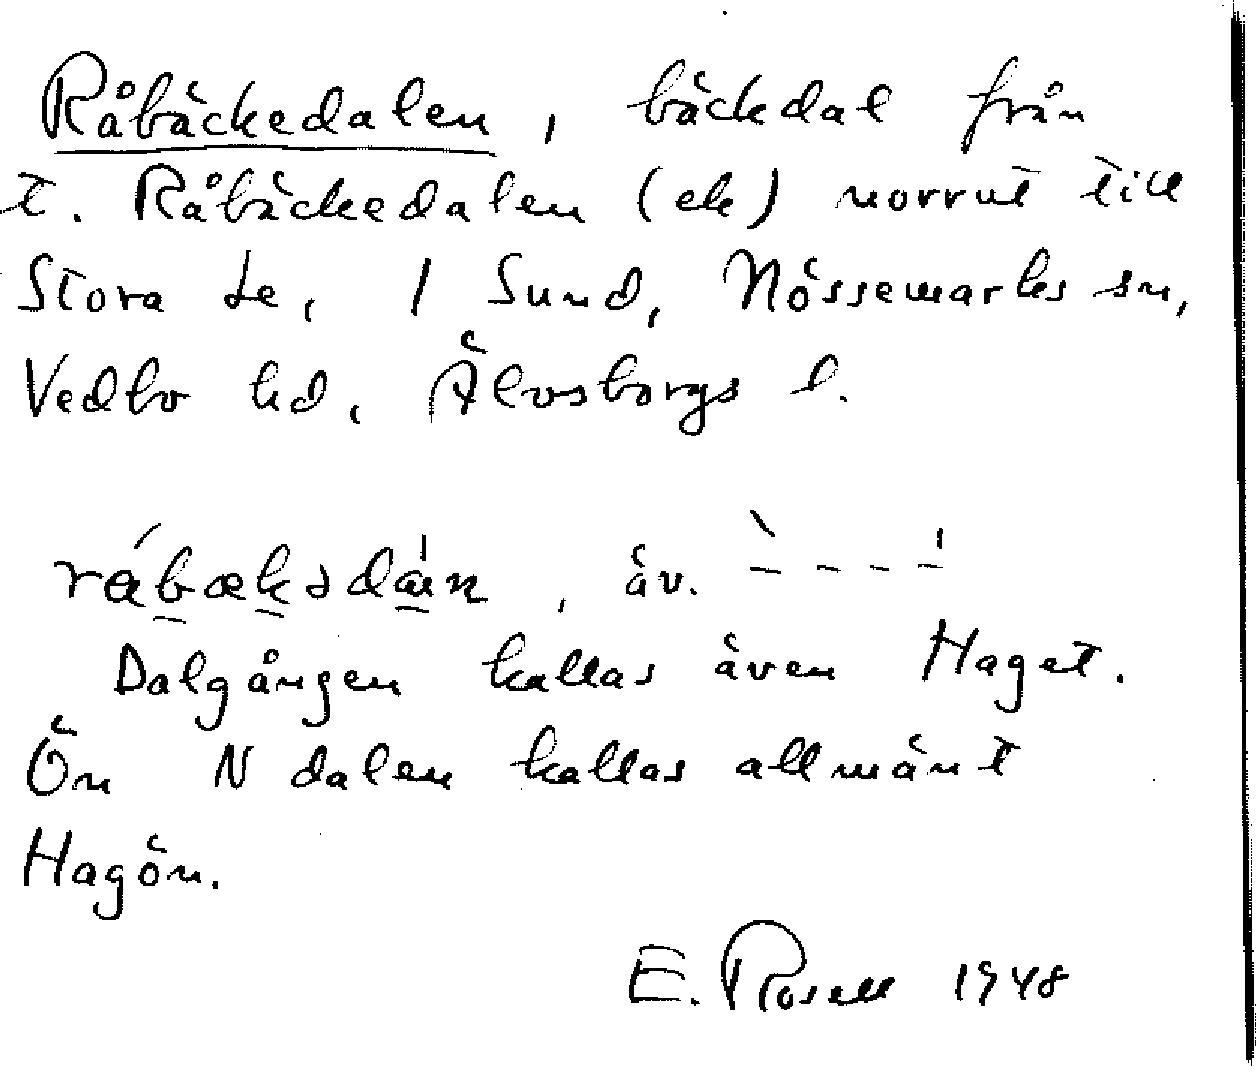 Råbäckedalen, bäckdal från
t. Råbäckedalen (ek) norrut till
Stora Le, 1 Sund, Nössemarks sn,
Vedbo hd, Älvsborgs l.
, äv.
Dalgången kallas även Haget.
Ön N dalen kallas allmänt
Hagön.
E. Rosell 1948